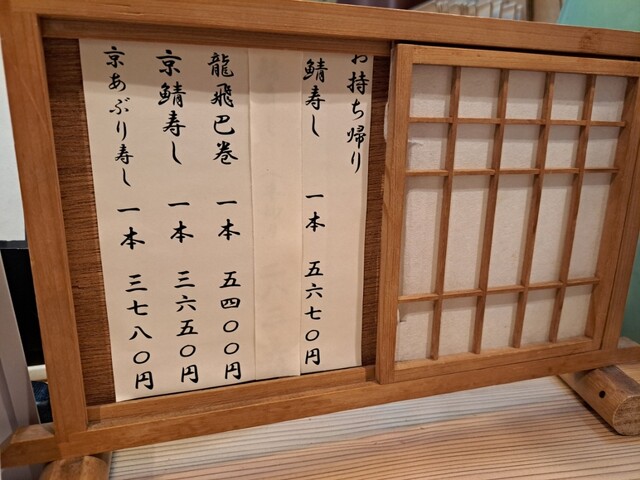 お持ち帰り
鯖寿し 一本 五六七〇円
龍飛巴巻 一本 五四〇〇円
京鯖寿し 一本 三六五〇円
京あぶり寿し 一本 三七八〇円